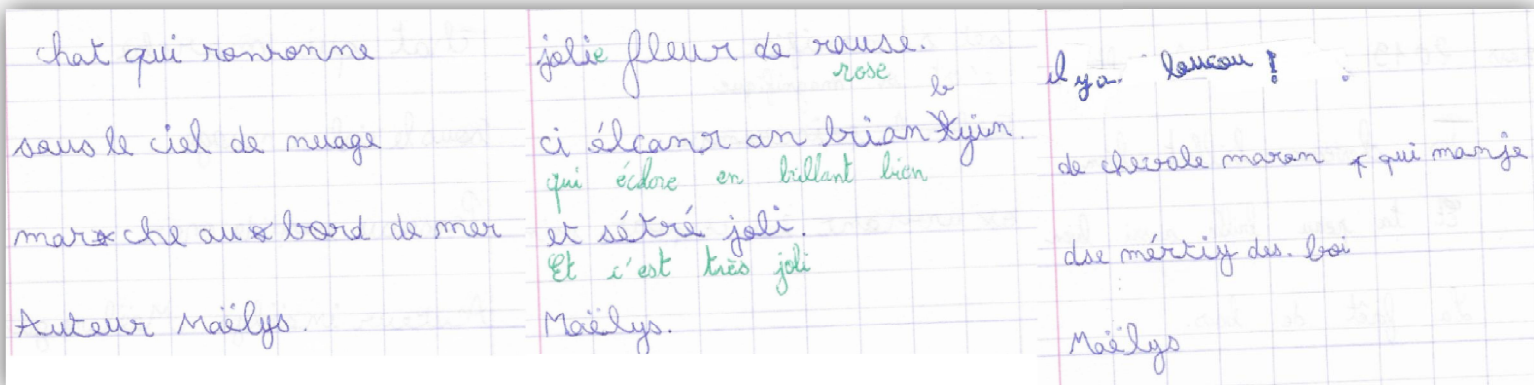 chat qui ronronne
sous le ciel de nuage
marche au bord de mer
Auteur Maëlys.
jolie fleur de rause.
rose
b
ci élcanr an brian
qui éclore en brillant bien
et sétré joli.
Et c'est très joli
Maëlys.
il ya. coucou !
de chevale maron qui manje
des. boi
Maëlys